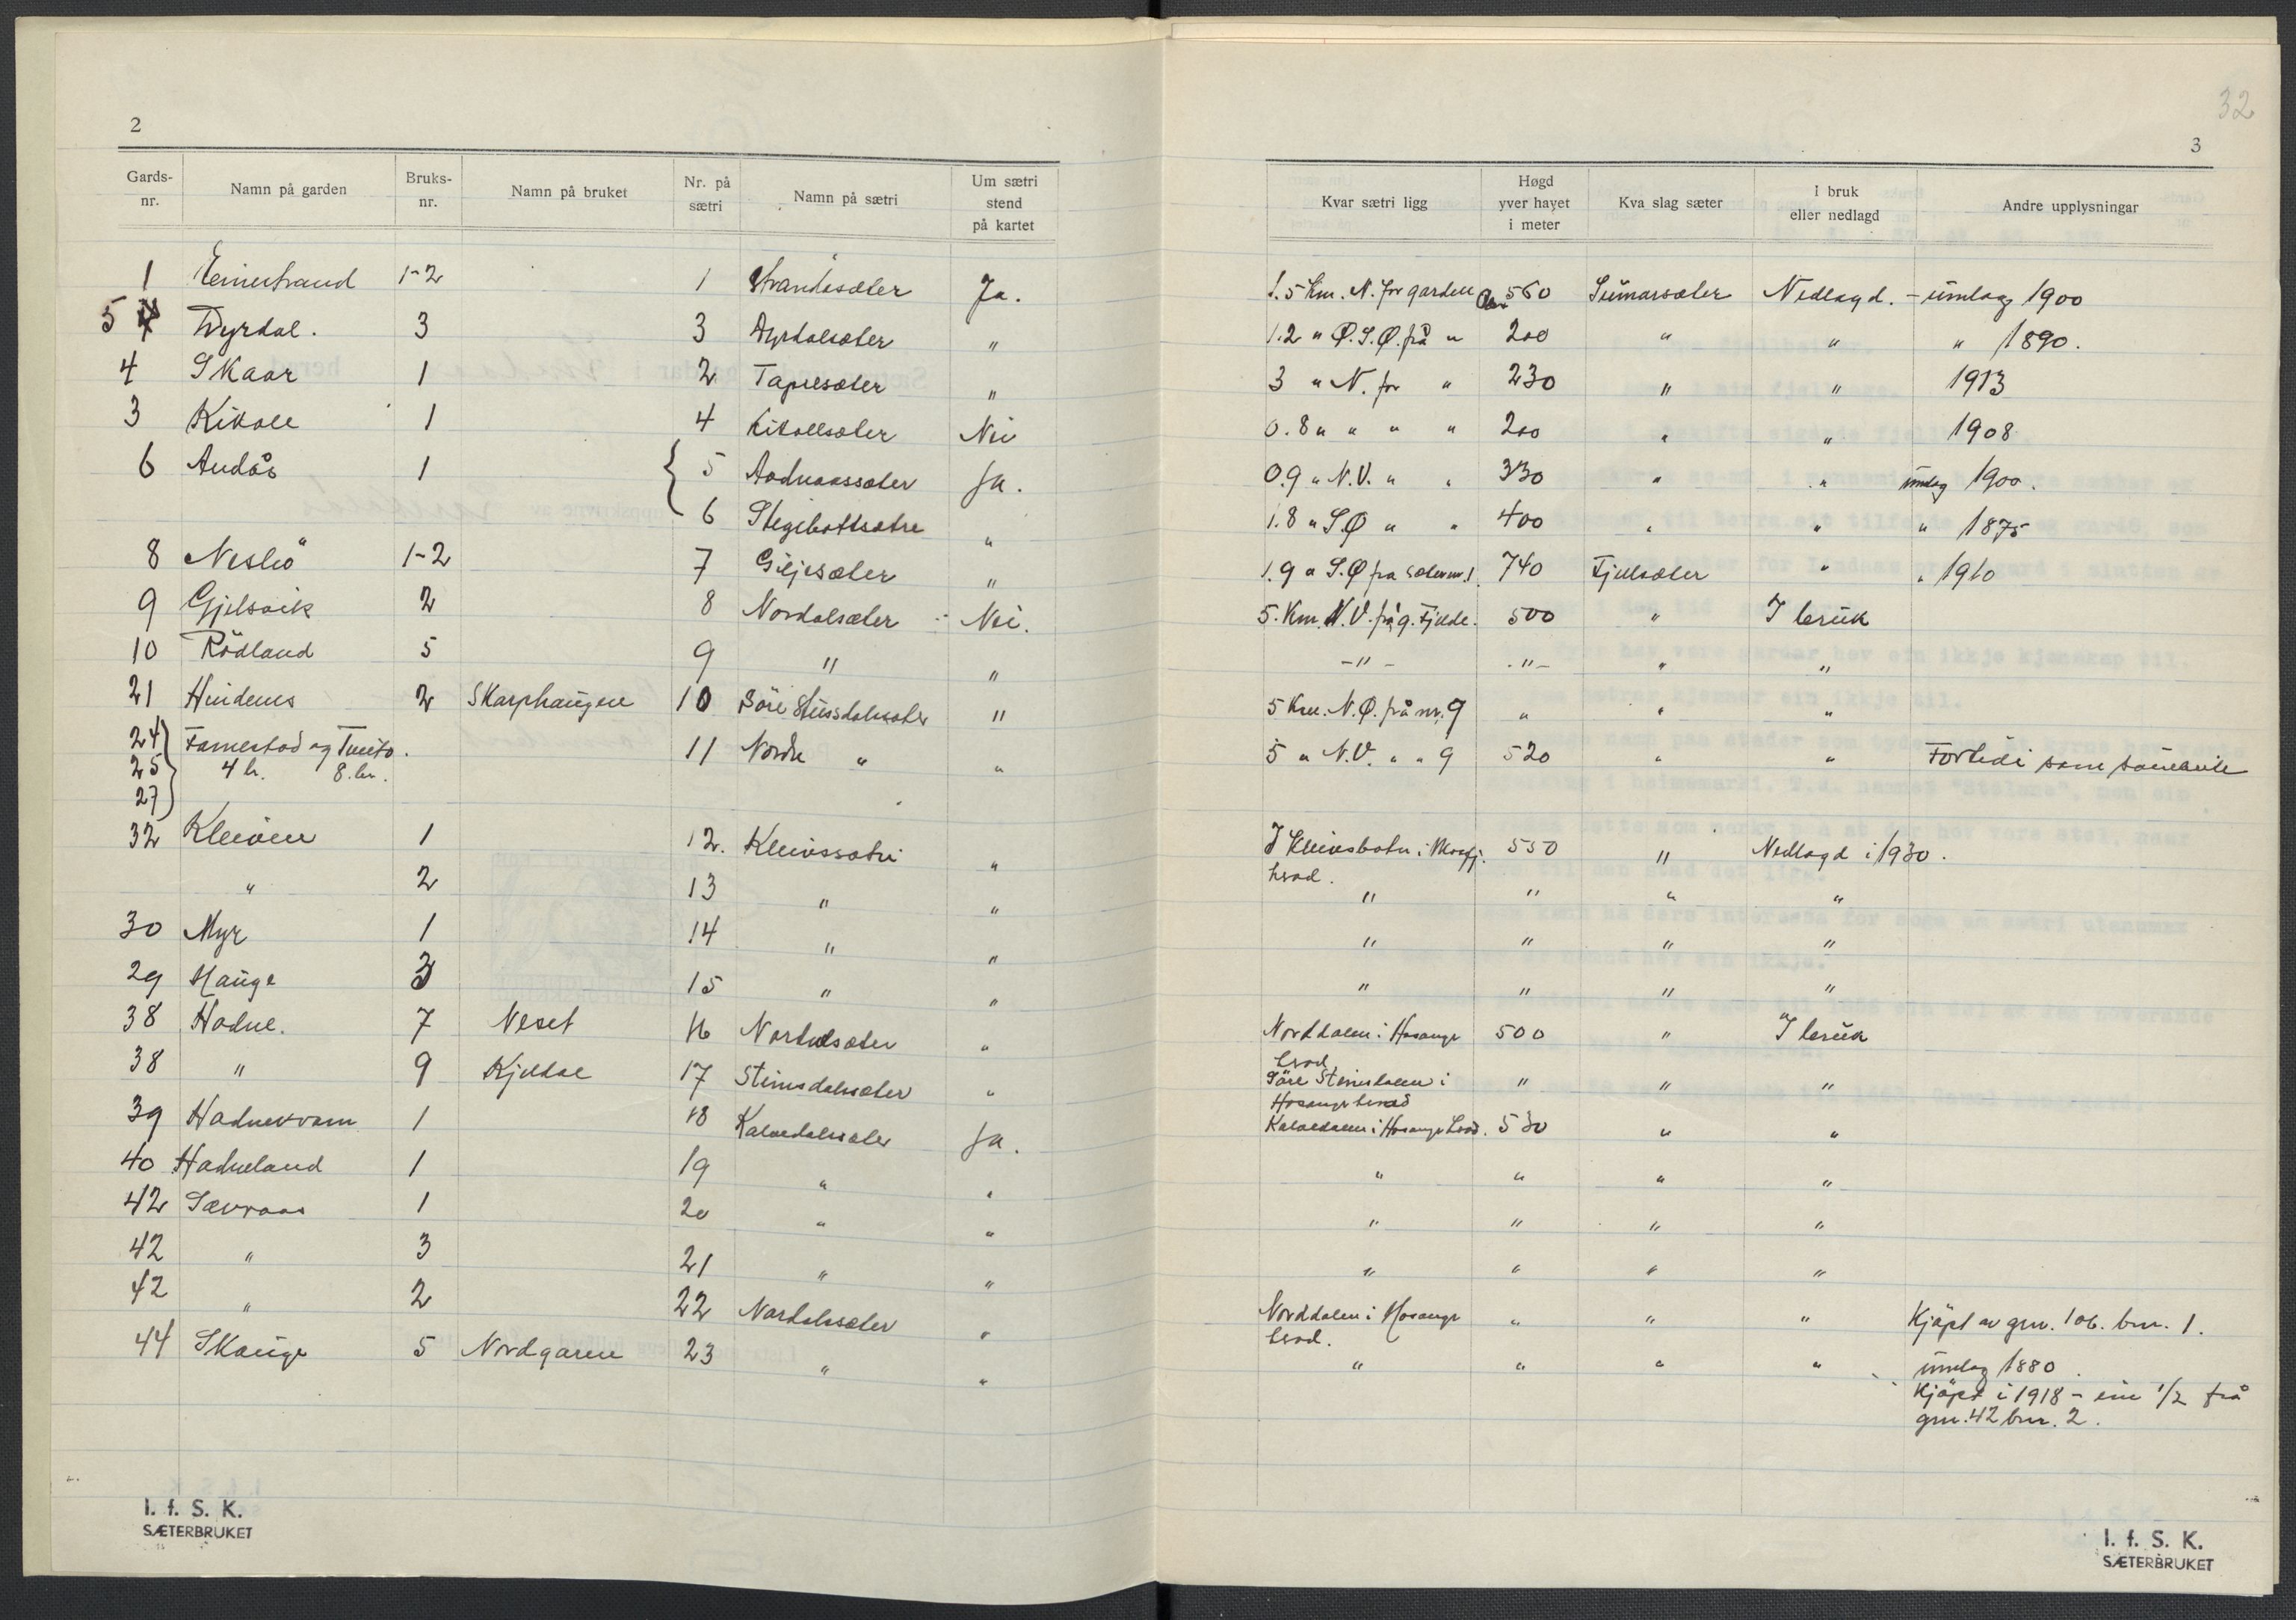 32
2
3
Gards-nr. Namn på garden Bruks-nr. Namn på bruket Nr. på sætri Namn på sætri Um sætri stend på kartet Kvar sætri ligg Høgd yver havet i meter Kva slag sæter I bruk eller nedlagd Andre upplysningar
1 Eeinestrand 1-2 1 Strandesæter Ja. 1.5 Km. N. for garden 560 Sumarsæter Nedlagd. - umlag 1900
5 Dyrdal. 3 3 Dyrdalsæter " 1.2 " Ø.S.Ø. frå " 200 " " " 1890.
4 Skaar 1 2 Tapresæter " 3 " N. for " 230 " " 1913
3 Kikall 1 4 Kikallsæter Nei 0.8 " " " " 200 " " 1908
6 Andås 1 5 Aadnaassæter Ja. 0.9 " N.V. " " 330 " " umlag 1900.
6 Stegibottsætre " 1.8 " S Ø " " 400 " " " 1875
8 Neslió 1-2 7 Giljesæter " 1.9 " S.Ø fra sæter nr. 1. 740 Fjellsæter " " 1910
9 Gjelsvik 2 8 Nordalsæter - Nei. 5. Km. N.V. frå g. Fjelde. 500 " I bruk
10 Rödland 5 9 " " -"- -"- " "
21 Hindenes 2 Skarphaugen 10 Söre Stussdalsæter " 5 Km. N.Ø. frå nr. 9 " " "
24 Famestad og Tveito. 11 Nordre " " 5 " N.V. " " 9 520 " " Fortidi som sambruk
25 4 br. 8. br.
27
32 Kleiven 1 12. Kleivssætri " I Kleivsbotn i Masfj. 550 " Nedlagd i 1930.
herad.
" 2 13 " " " " " "
30 Myr 1 14 " " " " " "
29 Hauge 3 15 " " " " " "
38 Hodne. 7 Neset 16 Nordalsæter " Norddalen i Hosanger 500 " I bruk
herad
38 " 9 Kjeldal 17 Steinsdalsæter " Söre Steinsdalen i " " "
Hosanger herad
39 Hadnekvam 1 18 Kalvedalsæter Ja. Kalvedalen i Hosanger herad. 530 " "
40 Hadneland 1 19 " " " " " "
42 Sævraas 1 20 " " " " " "
42 " 3 21 " " " " " "
42 " 2 22 Nordalsæter " Norddalen i Hosanger " " " Kjöpt av gnr. 106. bnr. 1.
herad.
44 Skauge 5 Nordgaren 23 " " " " " " umlag 1880.
Kjöpt i 1918 - ein 1/2 frå
gnr. 42 bnr. 2.
I. f. S. K.
SÆTERBRUKET
I. f. S. K.
SÆTERBRUKET